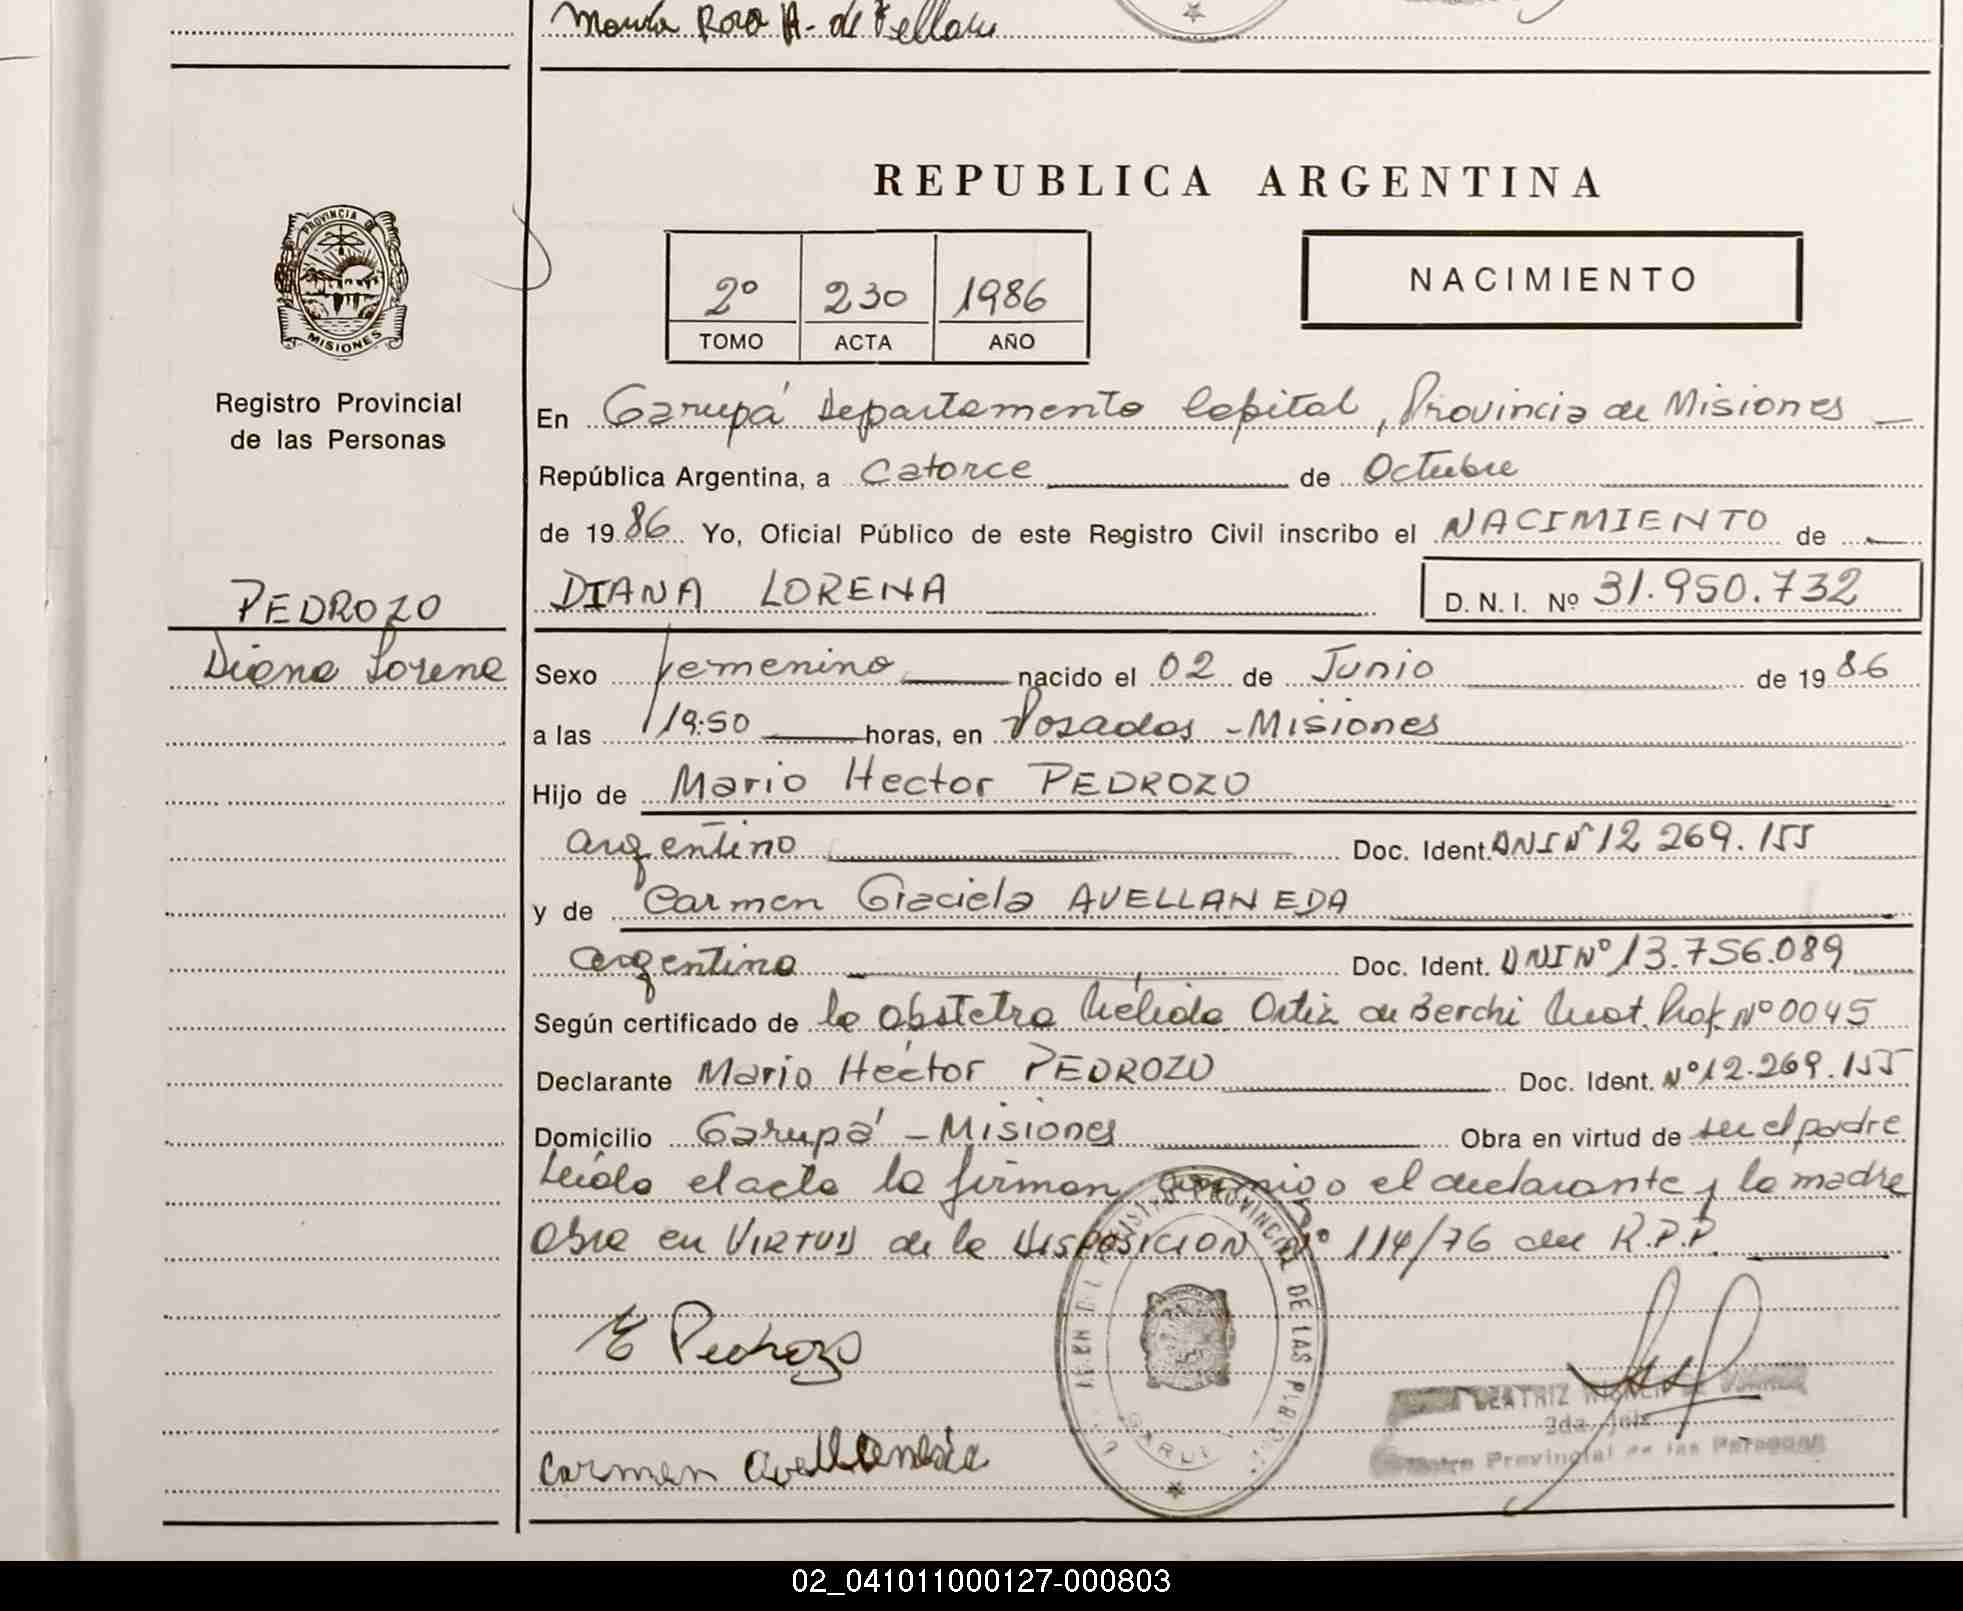 María Rosa A. de
REPUBLICA ARGENTINA
PROVINCIA DE
MISIONES
2º 230 1986
TOMO ACTA AÑO
NACIMIENTO
Registro Provincial
de las Personas
En Garupá Departamento Capital, Provincia de Misiones
República Argentina, a Catorce de Octubre
de 1986 Yo, Oficial Público de este Registro Civil inscribo el NACIMIENTO de
PEDROZO
DIANA LORENA D.N.I. Nº 31.950.732
Diana Lorena
Sexo femenino nacido el 02 de Junio de 1986
a las 19:50 horas, en Posadas - Misiones
Hijo de Mario Hector PEDROZO
argentino Doc. Ident. DNI Nº 12 269.155
y de Carmen Graciela AVELLANEDA
argentina Doc. Ident. DNI Nº 13.756.089
Según certificado de la obstetra Ortiz de Berchi Mat. Prof. Nº 0045
Declarante Mario Héctor PEDROZO Doc. Ident. Nº 12.269.155
Domicilio Garupá - Misiones Obra en virtud de ser el padre
Leída el acta la firman conmigo el declarante y la madre
Obra en VIRTUD de la DISPOSICION Nº 114/76 del R.P.P.
PROVINCIAL DE LAS
E Pedrozo
BEATRIZ
2da. Jefe
Provincial de las Personas
Carmen Avellaneda
02_041011000127-000803